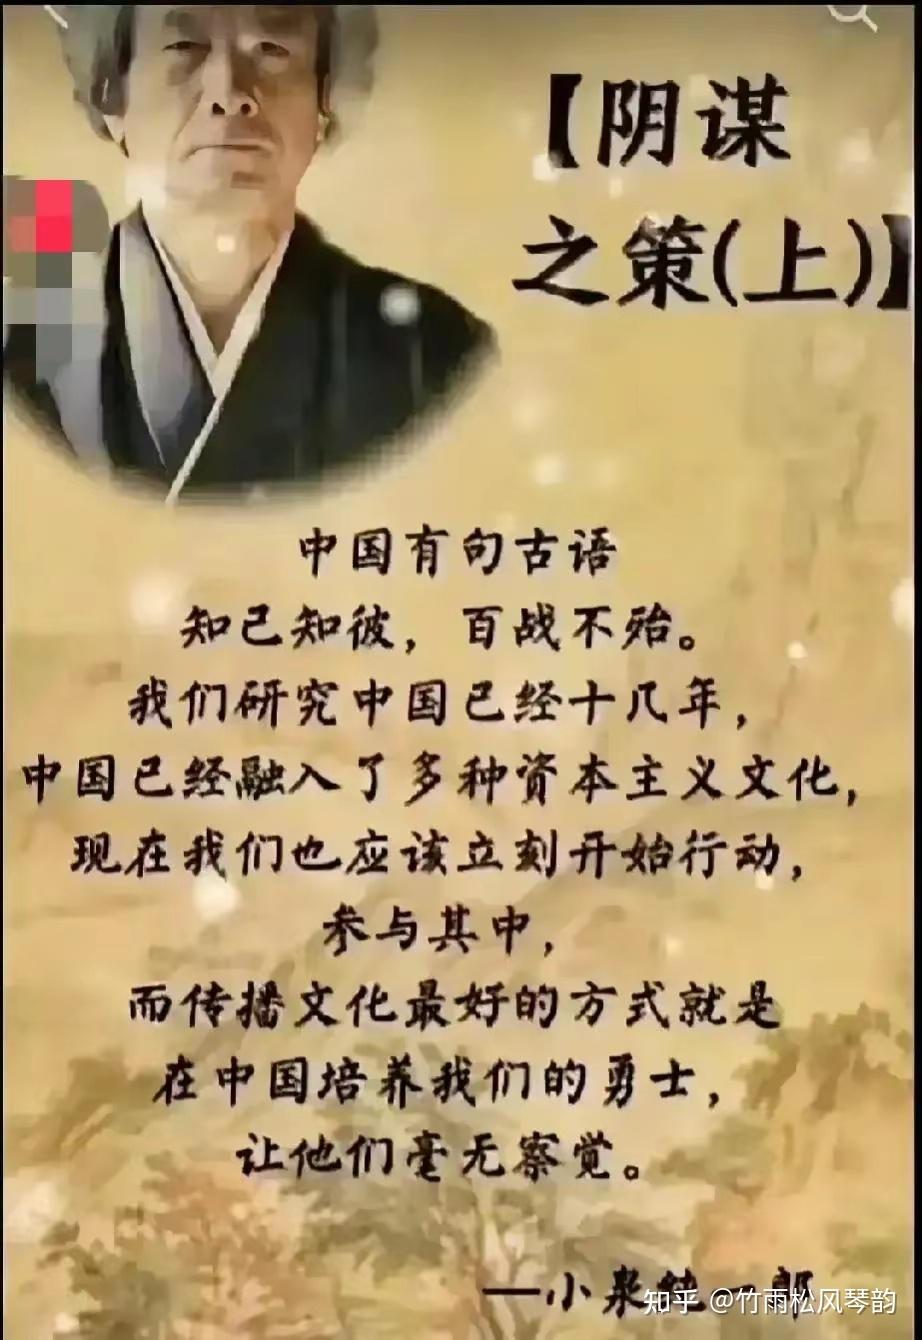 【阴谋
之策(上)】
中国有句古语
知己知彼，百战不殆。
我们研究中国已经十几年，
中国已经融入了多种资本主义文化，
现在我们也应该立刻开始行动，
参与其中，
而传播文化最好的方式就是
在中国培养我们的勇士，
让他们毫无察觉。
—小泉纯一郎
知乎 @竹雨松风琴韵